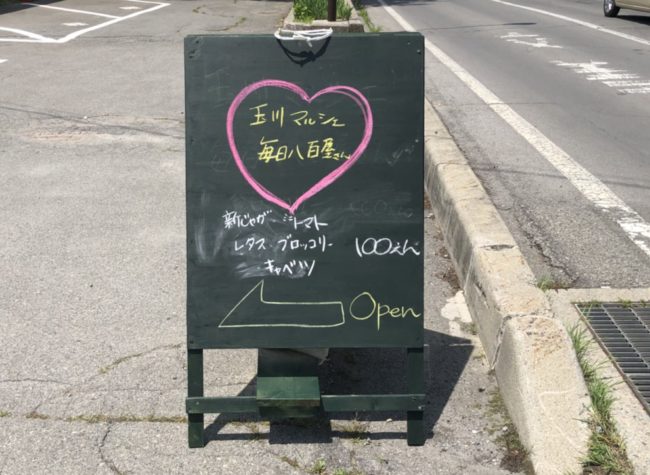 玉川マルシェ
毎日八百屋さん
新じゃが ミニトマト
レタス ブロッコリー 100えん
キャベツ
Open